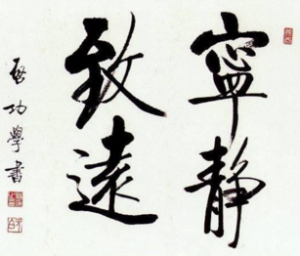 寧靜
致遠
啓功學書